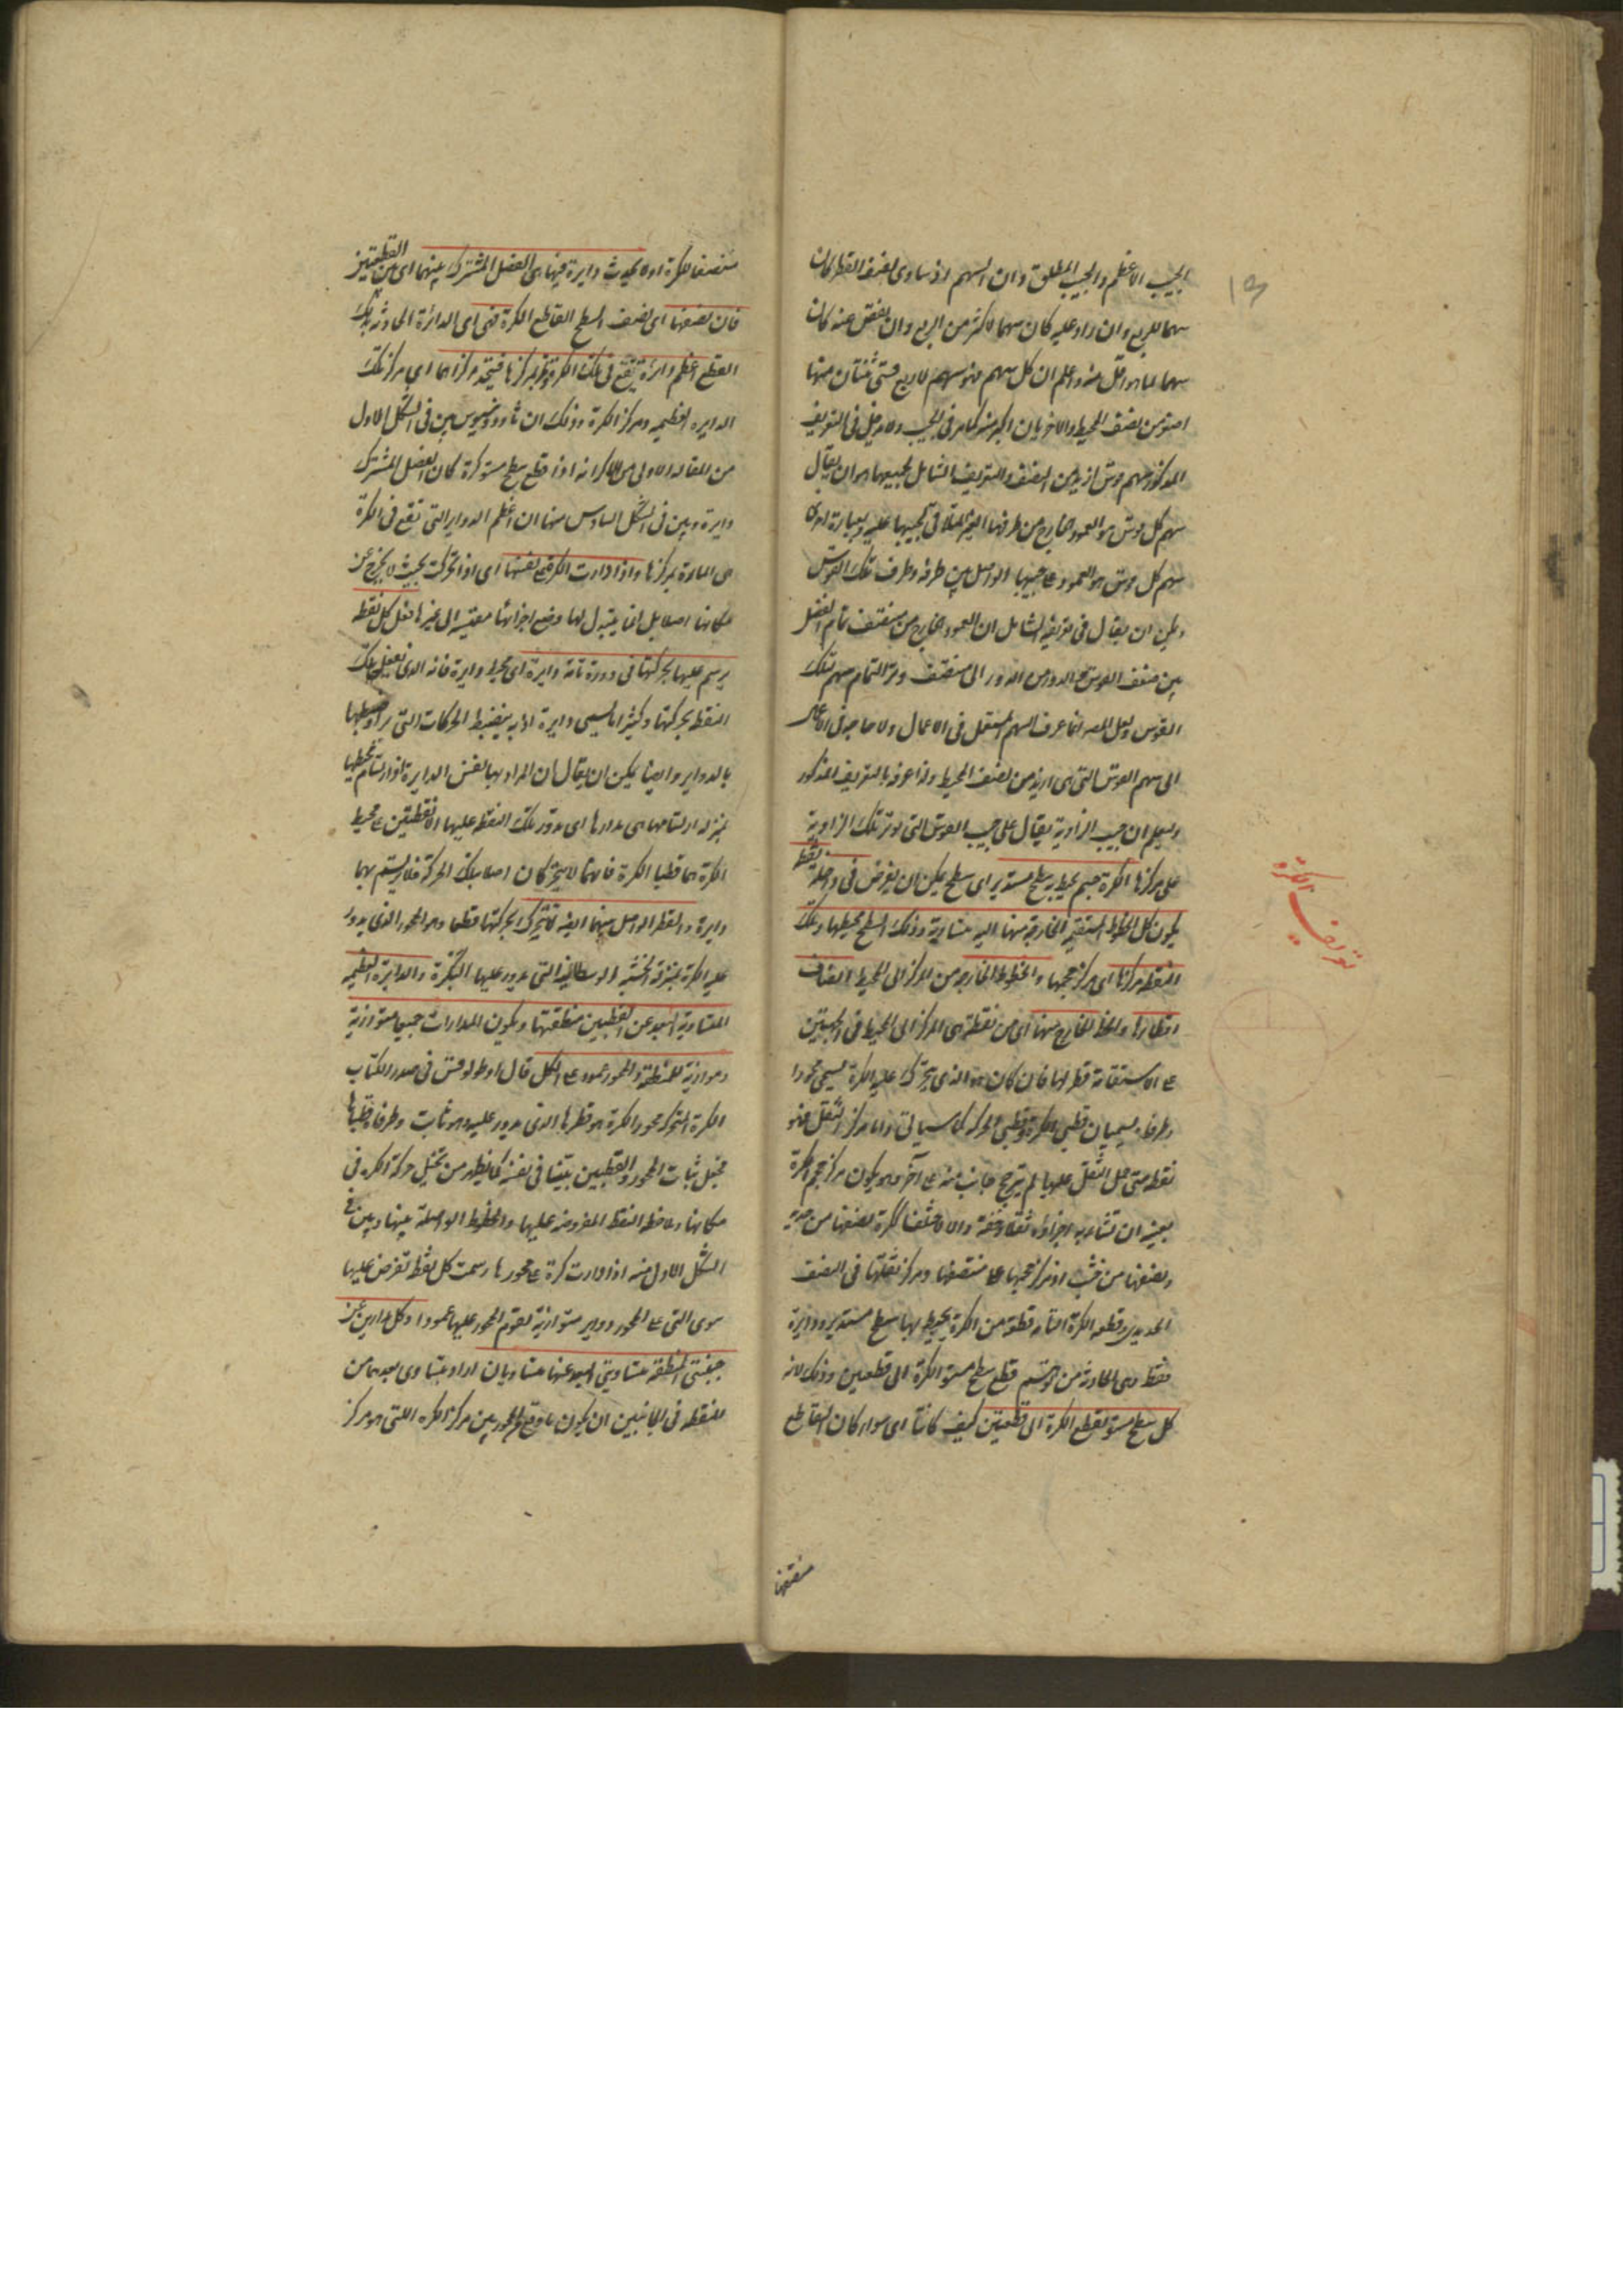 الجيب الاعظم والجيب المطلق وان السهم اذ ساوى نصف القطر كان
سهما للربع وان زاد عليه كان سهما لاكثر من الربع وان نقص عنه كان
سهما لما هو اقل منه واعلم ان كل سهم فهو سهم لاربع قسى ثنتان منها
اصغر من نصف المحيط والاخريان اكبر منه كما مر فى الجيب ولا يدخل فى التعريف
المذكور سهم قوس ازيد من النصف والتعريف الشامل لجميعها هو ان يقال
سهم كل قوس هو العمود الخارج من طرفها الغير الملاقى لجيبها عليه وبعبارة اخرى
سهم كل قوس هو العمود على جيبها الواصل بين طرفه وطرف تلك القوس
ويمكن ان يقال فى تعريفه الشامل ان العمود الخارج من منتصف تمام الفضل
بين ضعف القوس والدور من الدور الى منتصف وتر التمام سهم تلك
القوس ولعل المصـ انما عرف السهم المستعمل فى الاعمال ولا حاجة فى الاعمال
الى سهم القوس التى هى ازيد من نصف المحيط ولذا عرفه بالتعريف المذكور
وليعلم ان جيب الزاوية يقال على جيب القوس التى توتر تلك الزاوية
على مركزها الكرة جسم يحيط به سطح مستدير اى سطح يمكن ان يفرض فى داخله نقطة
يكون كل الخطوط المستقيمة الخارجة منها اليه متساوية وذلك السطح محيطها وتلك
النقطة مركزها اى مركز حجمها والخطوط الخارجة من المركز الى المحيط انصاف
اقطارها والخط الخارج منها اى من نقطة هى المركز الى المحيط فى الجهتين
على الاستقامة قطر لها فان كان هو الذى يتحرك عليه الكرة يسمى محورا
وطرفاه يسميان قطبى الكرة وقطبى الحركة كما سيأتى واما مركز الثقل فهو
نقطة متى حمل الثقل عليها لم يترجح جانب منه على آخر وهو يكون مركز حجم الكرة
بعينه ان تشابه اجزاؤه ثقلا وخفة والا اختلفا ككرة نصفها من حديد
ونصفها من خشب اذ مركز حجمها على منتصفها ومركز ثقلها فى النصف
الحديدى وقطعة الكرة اما قطعة من الكرة يحيط بها سطح مستدير ودائرة
فقط وهى الحادثة من توهم قطع سطح مستو الكرة الى قطعتين وذلك لانه
كل سطح مستو يقطع الكرة الى قطعتين كيف كانتا اى سواء كان القاطع
منصفها
تعريف الكرة
منصفا للكرة اولا يحدث دايرة فيها هى الفصل المشترك بينهما اى بين القطعتين
فان نصفها اى نصف السطح القاطع الكرة فهى اى الدائرة الحادثة بذلك
القطع اعظم دائرة تقع فى تلك الكرة وتمر بمركزها فيتحد مركزاهما اى مركز تلك
الدايرة العظيمة ومركز الكرة وذلك ان ثاوذوسيوس بين فى الشكل الاول
من المقالة الاولى من الاكر انه اذا قطع سطح مستو كرة كان الفصل المشترك
دايرة وبين فى الشكل السادس منها ان اعظم الدواير التى تقع فى الكرة
هى المارة بمركزها واذا دارت الكرة على نفسها اى اذا تحركت بحيث لا يخرج عن
مكانها اصلا بل انما يتبدل لها وضع اجزائها مقيسة الى غيرها فعلى كل نقطة
يرسم عليها بحركتها فى دورة تامة دايرة اى محيط دايرة فانه الذى تفعله تلك
النقطة بحركتها وكثيرا ما يسمى دايرة اذ به ينضبط الحركات التى يراد ضبطها
بالدواير وايضا يمكن ان يقال ان المراد بها نفس الدايرة اذ ارتسام محيطها
بمنزلة ارتسامها هى مدارها اى مدور تلك النقطة عليها الا نقطتين على محيط
الكرة هما قطبا الكرة فانهما لا يتحركان اصلا بتلك الحركة فلا يرتسم بهما
دايرة والقطر الواصل بينهما ايضا لا يتحرك بحركتها قطعا وهو المحور الذى يدور
عليه الكرة بمنزلة الخشبة الوسطانية التى يدور عليها البكرة والدايرة العظيمة
المتساوية البعد عن القطبين منطقتها ويكون المدارات جميعا متوازية
وموازية للمنطقة والمحور عمود على الكل قال اوطولوقس فى صدر الكتاب
الكرة المتحركة محور الكرة هو قطرها الذى يدور عليه وهو ثابت وطرفاه قطباها
فجعل ثبات المحور والقطبين بينا فى نفسه كما يظهر من تخيل حركة الكرة فى
مكانها وملاحظة النقط المفروضة عليها والخطوط الواصلة بينها وبين فى
الشكل الاول منه اذا دارت كرة على محورها رسمت كل نقطة تفرض عليها
سوى التى على المحور دواير متوازية يقوم المحور عليها عمودا وكل مدارين عن
جنبتى المنطقة متساويتى البعد عنها متساويان اراد بتساوى بعدهما من
المنطقة فى الجانبين ان يكون ما وقع من المحور بين مركز الكرة اللتى هو مركز